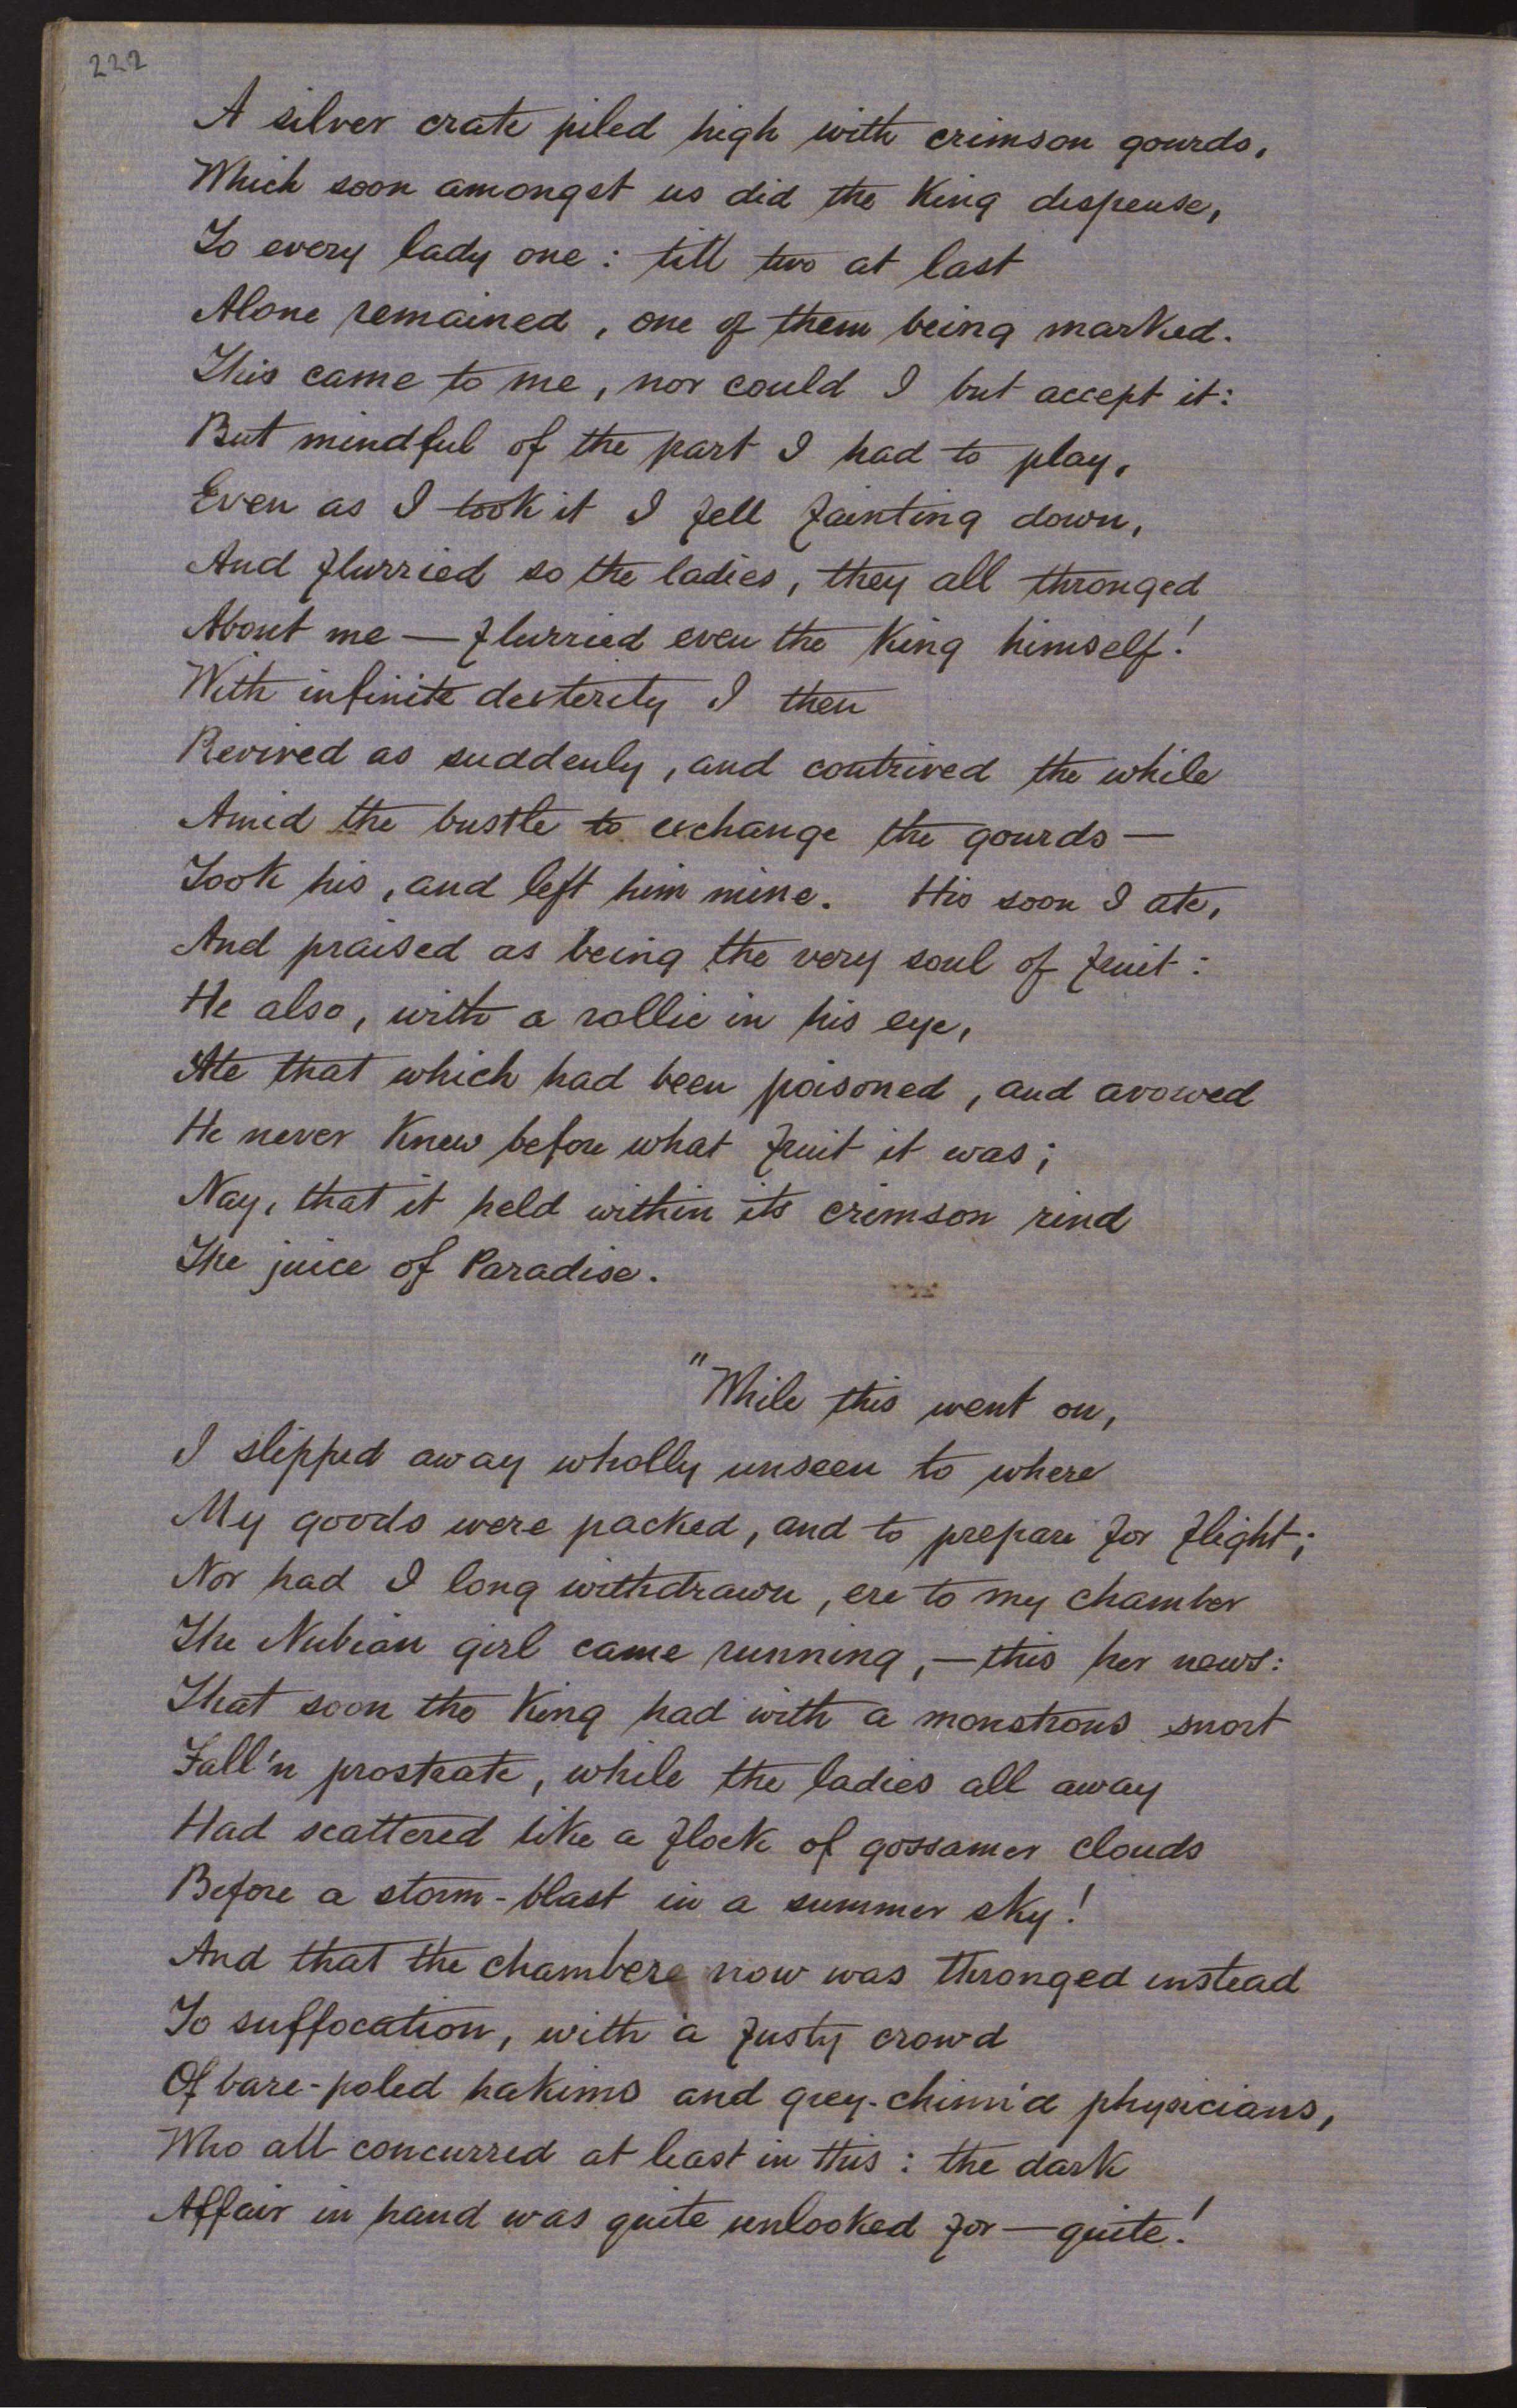 222
A silver crate piled high with crimson gourds,
Which soon amongst us did the King dispense,
To every lady one : till two at last
Alone remained, one of them being marked.
This came to me, nor could I but accept it:
But mindful of the part I had to play,
Even as I took it I fell fainting down,
And flurried so the ladies, they all thronged
About me — flurried even the King himself!
With infinite dexterity I then
Revived as suddenly, and contrived the while
Amid the bustle to exchange the gourds —
Took his, and left him mine. His soon I ate,
And praised as being the very soul of fruit :
He also, with a rollic in his eye,
Ate that which had been poisoned, and avowed
He never knew before what fruit it was;
Nay, that it held within its crimson rind
The juice of Paradise.
"While this went on,
I slipped away wholly unseen to where
My goods were packed, and to prepare for flight;
Nor had I long withdrawn, ere to my chamber
The Nubian girl came running, — this her news:
That soon the King had with a monstrous snort
Fall'n prostrate, while the ladies all away
Had scattered like a flock of gossamer clouds
Before a storm-blast in a summer sky!
And that the chambers now was thronged instead
To suffocation, with a fusty crowd
Of bare-poled hakims and grey-chinn'd physicians,
Who all concurred at least in this : the dark
Affair in hand was quite unlooked for — quite!